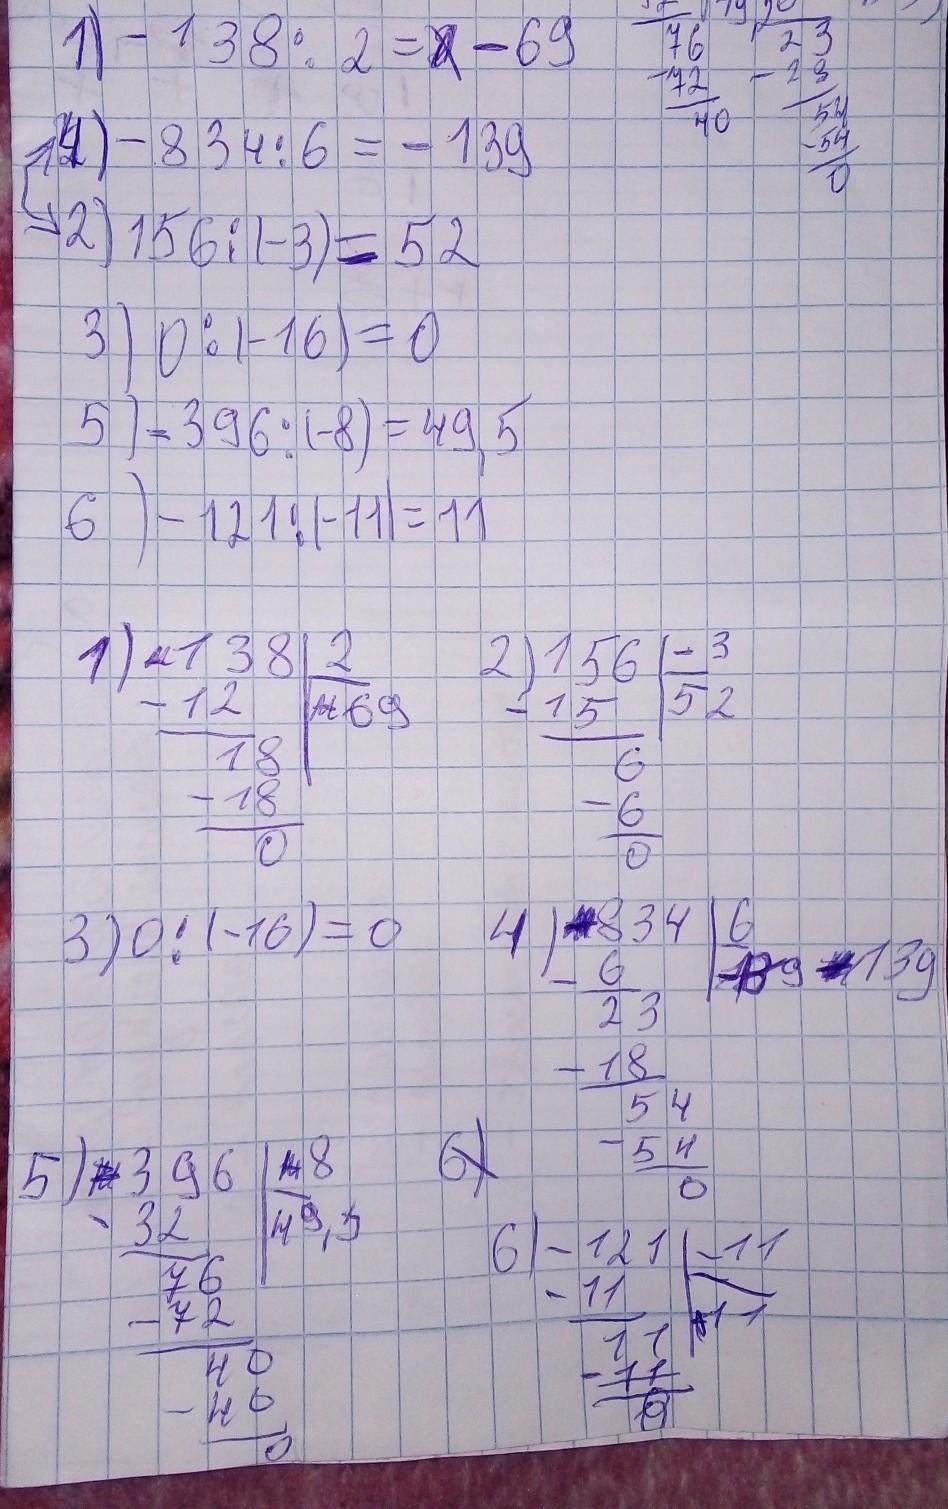 1) -138 : 2 = -69
4) -834 : 6 = -139
2) 156 : (-3) = 52
3) 0 : (-16) = 0
5) -396 : (-8) = 49,5
6) -121 : (-11) = 11
76 23
-72 - 23
40 54
-54
0
1) -138 | 2
-12 | 69
18
-18
0
2) 156 | -3
-15 | 52
6
-6
0
3) 0 : (-16) = 0
4) 834 | 6
-6 | 139
23
-18
54
-54
0
5) 396 | 8
-32 | 49,5
76
-72
40
-40
0
6)
6) -121 | -11
-11 | 11
11
-11
0